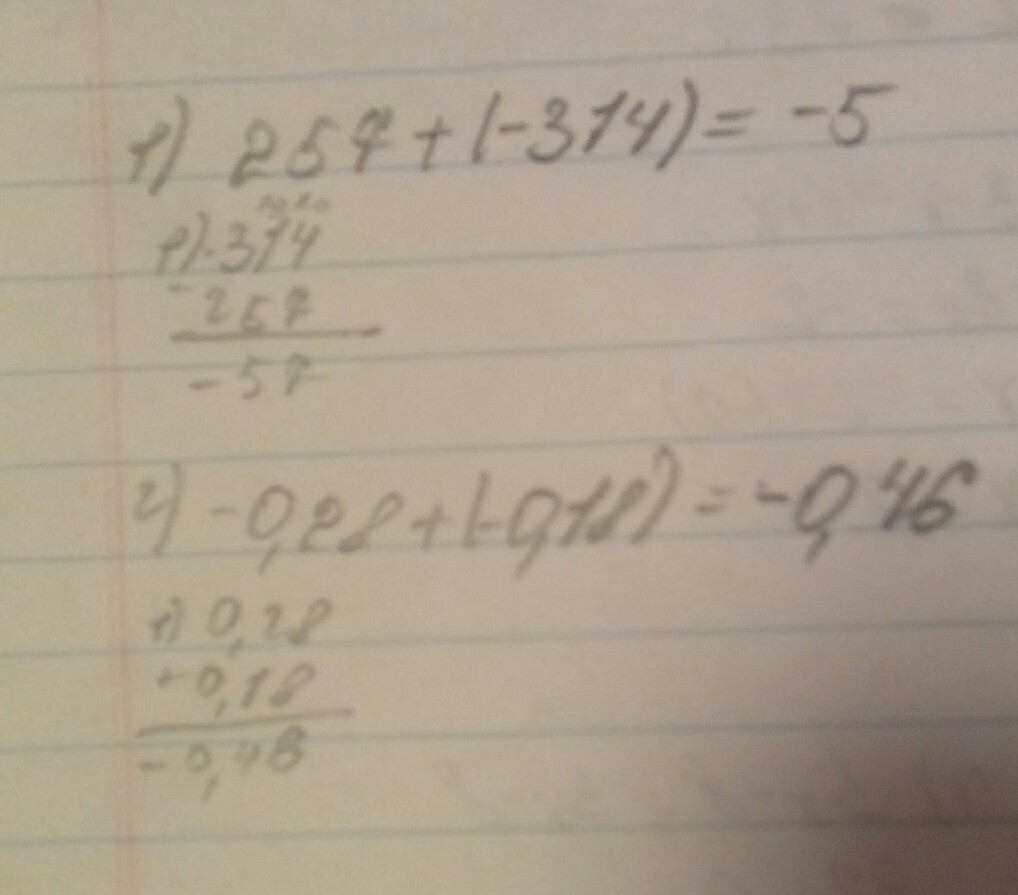 1) 257 + (-314) = -5
1) -314
- 257
- 57
2) -0,28 + (-0,18) = -0,46
1) 0,28
+0,18
-0,46